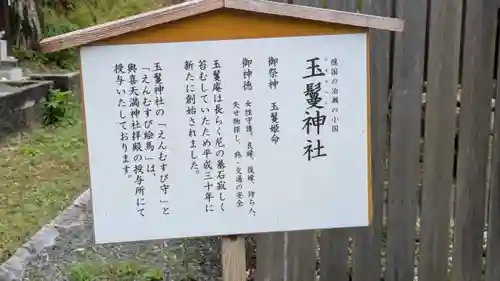 隠国の泊瀬の小国
玉鬘神社
御祭神 玉鬘姫命
御神徳 女性守護、良縁、復縁、待ち人、
失せ物探し、旅、交通の安全
玉鬘庵は長らく尼の墓石寂しく
苔むしていたため平成三十年に
新たに創始されました。
玉鬘神社の「えんむすび守」と
「えんむすび絵馬」は、
與喜天満神社拝殿の授与所にて
授与いたしております。